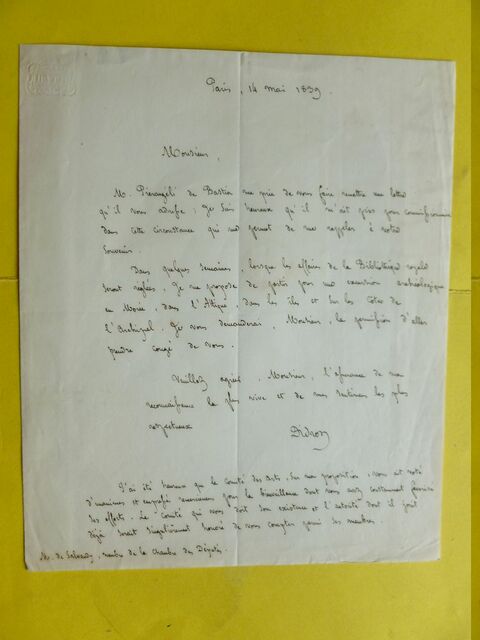 Paris, 14 mai 1839.
Monsieur,
M. Pierangeli de Bastia me prie de vous faire remettre une lettre
qu'il vous adresse ; je suis heureux qu'il m'ait pris pour commissionnaire
dans cette circonstance qui me permet de me rappeler à votre
souvenir.
Dans quelques semaines, lorsque les affaires de la Bibliothèque royale
seront réglées, je me propose de partir pour une excursion archéologique
en Morée, dans l'Attique, dans les îles et sur les côtes de
l'Archipel. Je vous demanderai, Monsieur, la permission d'aller
prendre congé de vous.
Veuillez agréer, Monsieur, l'assurance de ma
reconnaissance la plus vive et de mes sentimens les plus
respectueux
Didron
J'ai été heureux que le comité des arts, sur ma proposition, vous ait voté
d'unanimes et empressés remercimens pour la bienveillance dont vous avez constamment favorisé
ses efforts. Le Comité qui vous doit son existence et l'autorité dont il jouit
déjà serait singulièrement honoré de vous compter parmi ses membres.
M. de Salvandy, membre de la Chambre des Députés.